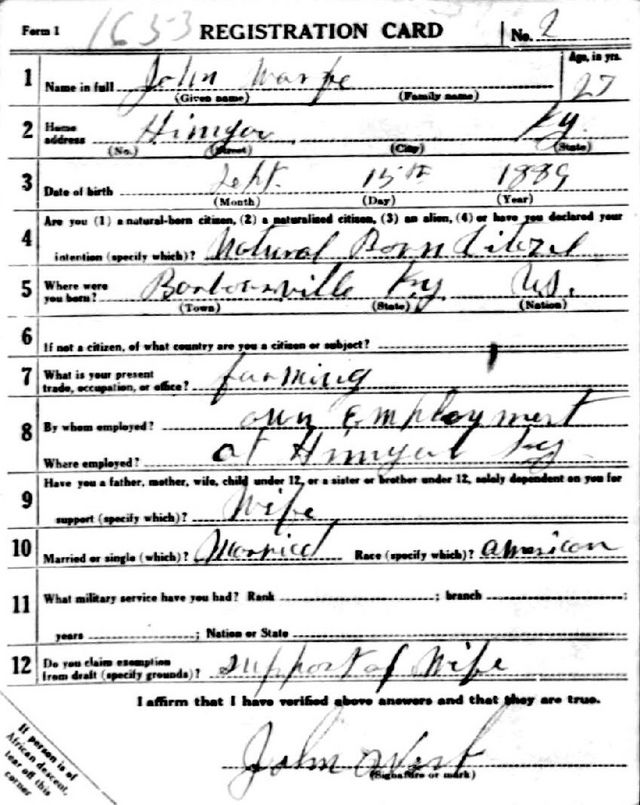 Form 1 1653 REGISTRATION CARD No. 2
Age, in yrs.
1 Name in full John 27
(Given name) (Family name)
2 Home address Himyar Ky.
(No.) (Street) (City) (State)
3 Date of birth Sept. 15th 1889
(Month) (Day) (Year)
4 Are you (1) a natural-born citizen, (2) a naturalized citizen, (3) an alien, (4) or have you declared your
intention (specify which)? Natural Born
5 Where were you born? Barbourville Ky. US.
(Town) (State) (Nation)
6 If not a citizen, of what country are you a citizen or subject?
7 What is your present trade, occupation, or office? farming
8 By whom employed? own employment
Where employed? at Himyar Ky
9 Have you a father, mother, wife, child under 12, or a sister or brother under 12, solely dependent on you for
support (specify which)? Wife
10 Married or single (which)? Married Race (specify which)? american
11 What military service have you had? Rank ; branch ;
years ; Nation or State
12 Do you claim exemption from draft (specify grounds)? support of Wife
I affirm that I have verified above answers and that they are true.
John
(Signature or mark)
If person is of
African descent,
tear off this
corner